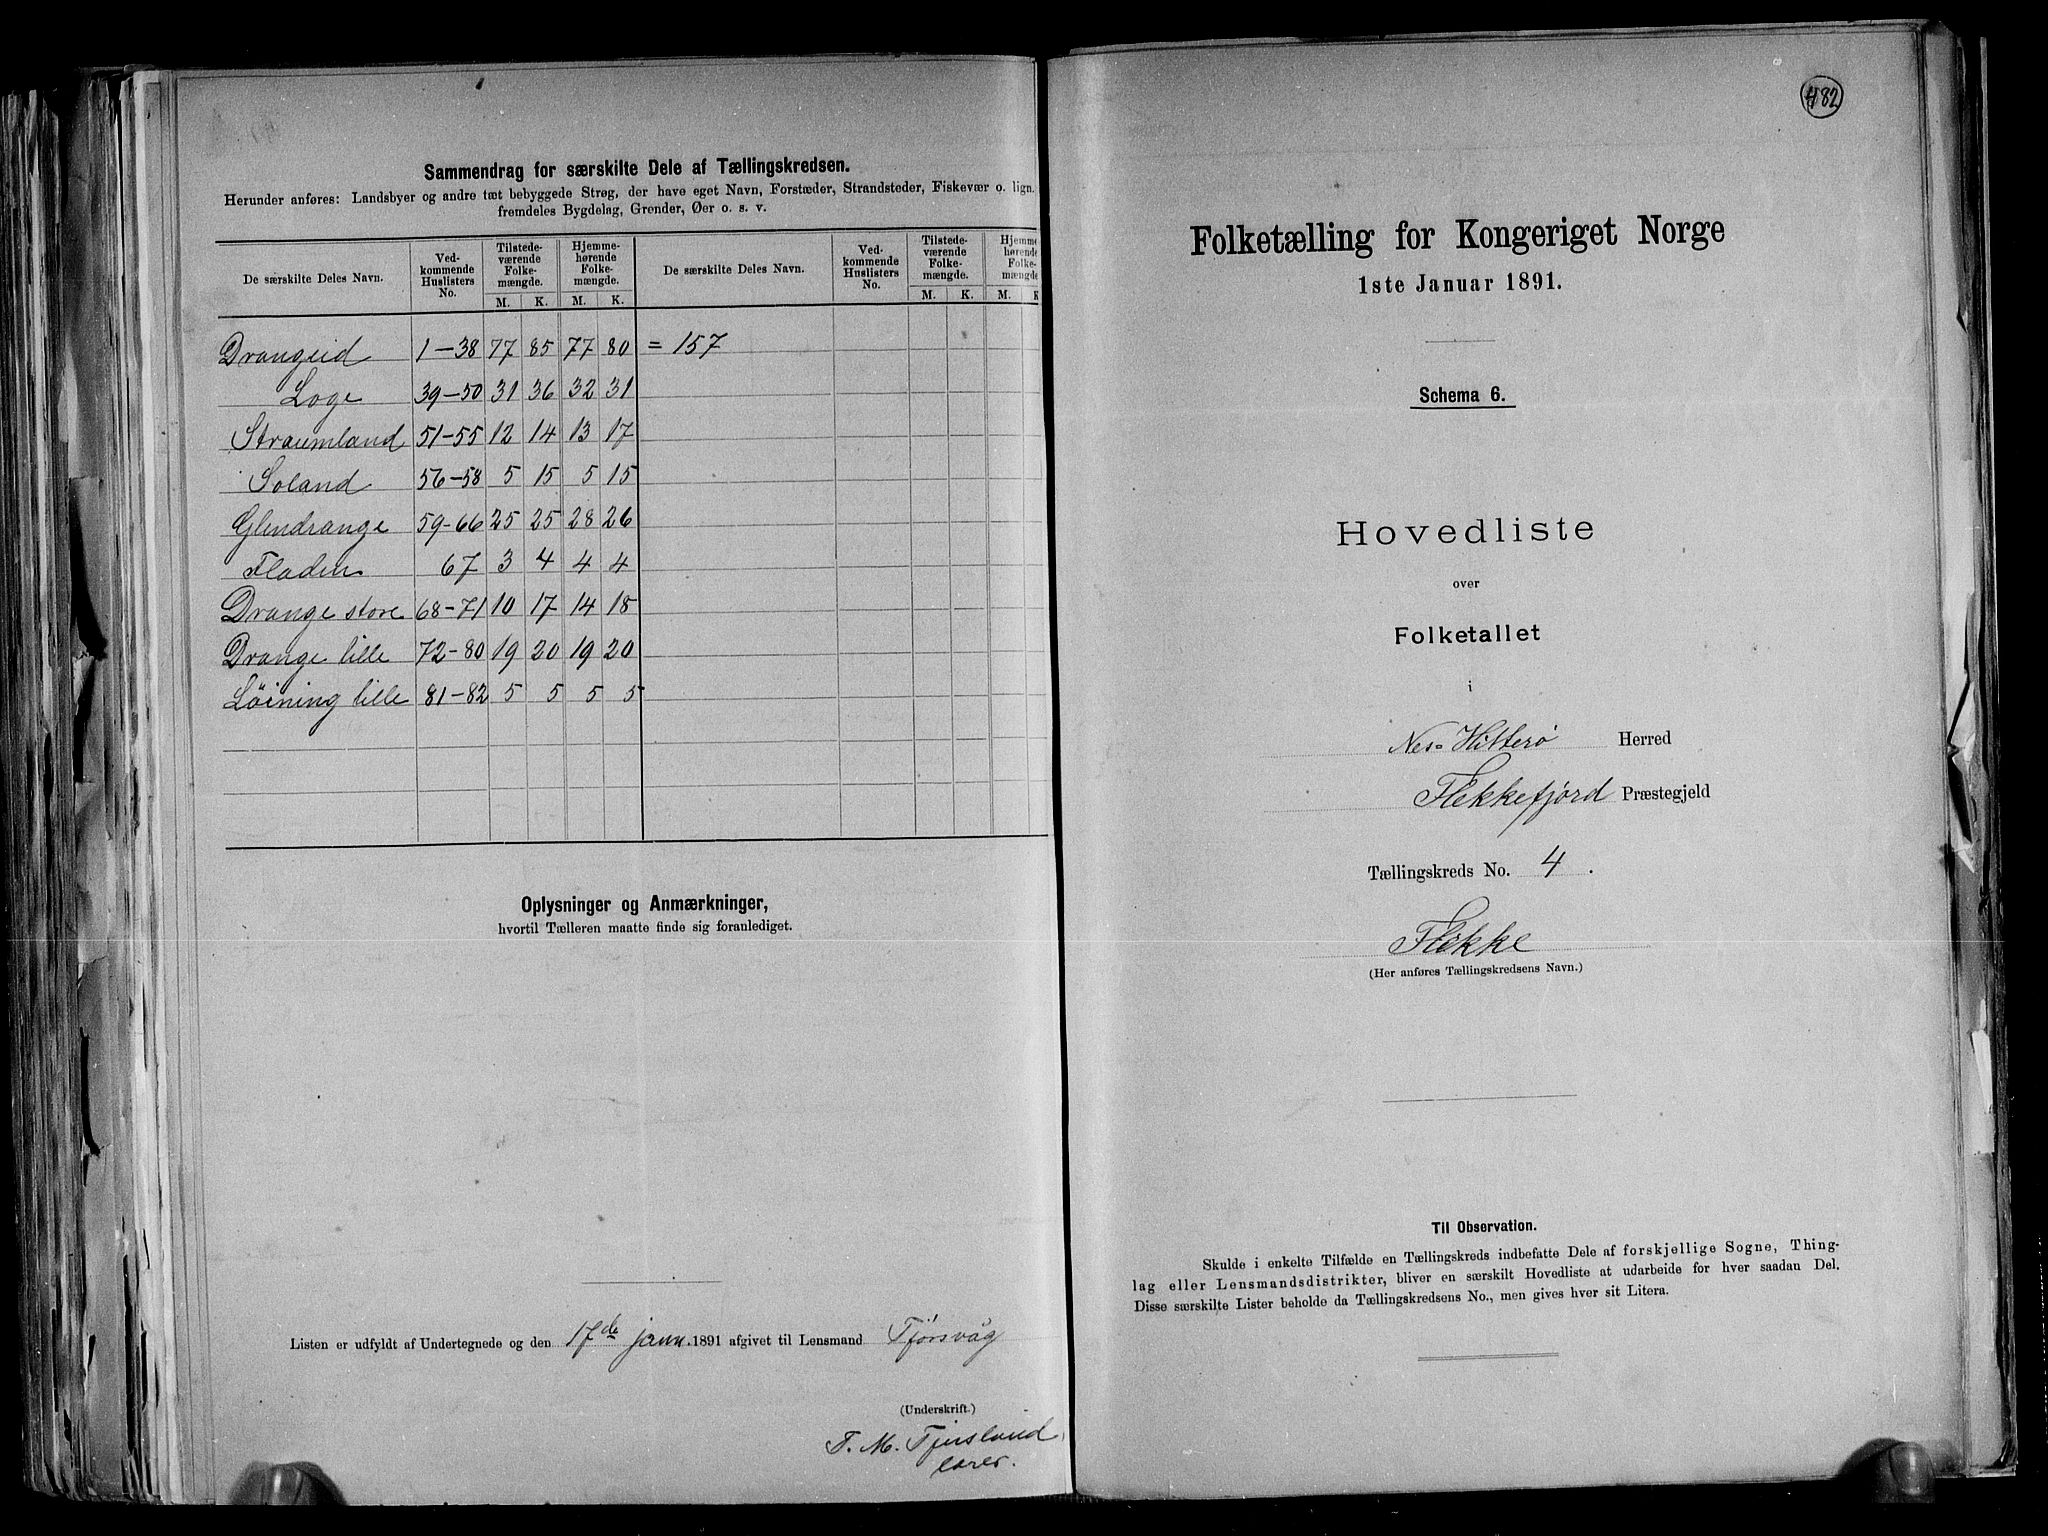 Sammendrag for særskilte Dele af Tællingskredsen.
Herunder anføres: Landsbyer og andre tæt bebyggede Strøg, der have eget Navn, Forstæder, Strandsteder, Fiskevær o. lign.
fremdeles Bygdelag, Grender, Øer o. s. v.
De særskilte Deles Navn. Ved-kommende Huslisters No. Tilstede-værende Folke-mængde. Hjemme-hørende Folke-mængde. De særskilte Deles Navn. Ved-kommende Huslisters No. Tilstede-værende Folke-mængde. Hjemme-hørende Folke-mængde
M. K. M. K. M. K. M. K
Drangeid 1-38 77 85 77 80 = 157
Loge 39-50 31 36 32 31
Straumland 51-55 12 14 13 17
Soland 56-58 5 15 5 15
Glendrange 59-66 25 25 28 26
Fladen 67 3 4 4 4
Drange store 68-71 10 17 14 18
Drange lille 72-80 19 20 19 20
Löining lille 81-82 5 5 5 5
Oplysninger og Anmærkninger,
hvortil Tælleren maatte finde sig foranlediget.
Listen er udfyldt af Undertegnede og den 17de janu. 1891 afgivet til Lensmand Tjörsvåg
(Underskrift.)
T. M. Tjersland
lærer.
482
Folketælling for Kongeriget Norge
1ste Januar 1891.
Schema 6.
Hovedliste
over
Folketallet
i
Nes-Hitterö Herred
Flekkefjord Præstegjeld
Tællingskreds No. 4.
Flikke
(Her anføres Tællingskredsens Navn.)
Til Observation.
Skulde i enkelte Tilfælde en Tællingskreds indbefatte Dele af forskjellige Sogne, Thing-
lag eller Lensmandsdistrikter, bliver en særskilt Hovedliste at udarbeide for hver saadan Del.
Disse særskilte Lister beholde da Tællingskredsens No., men gives hver sit Litera.